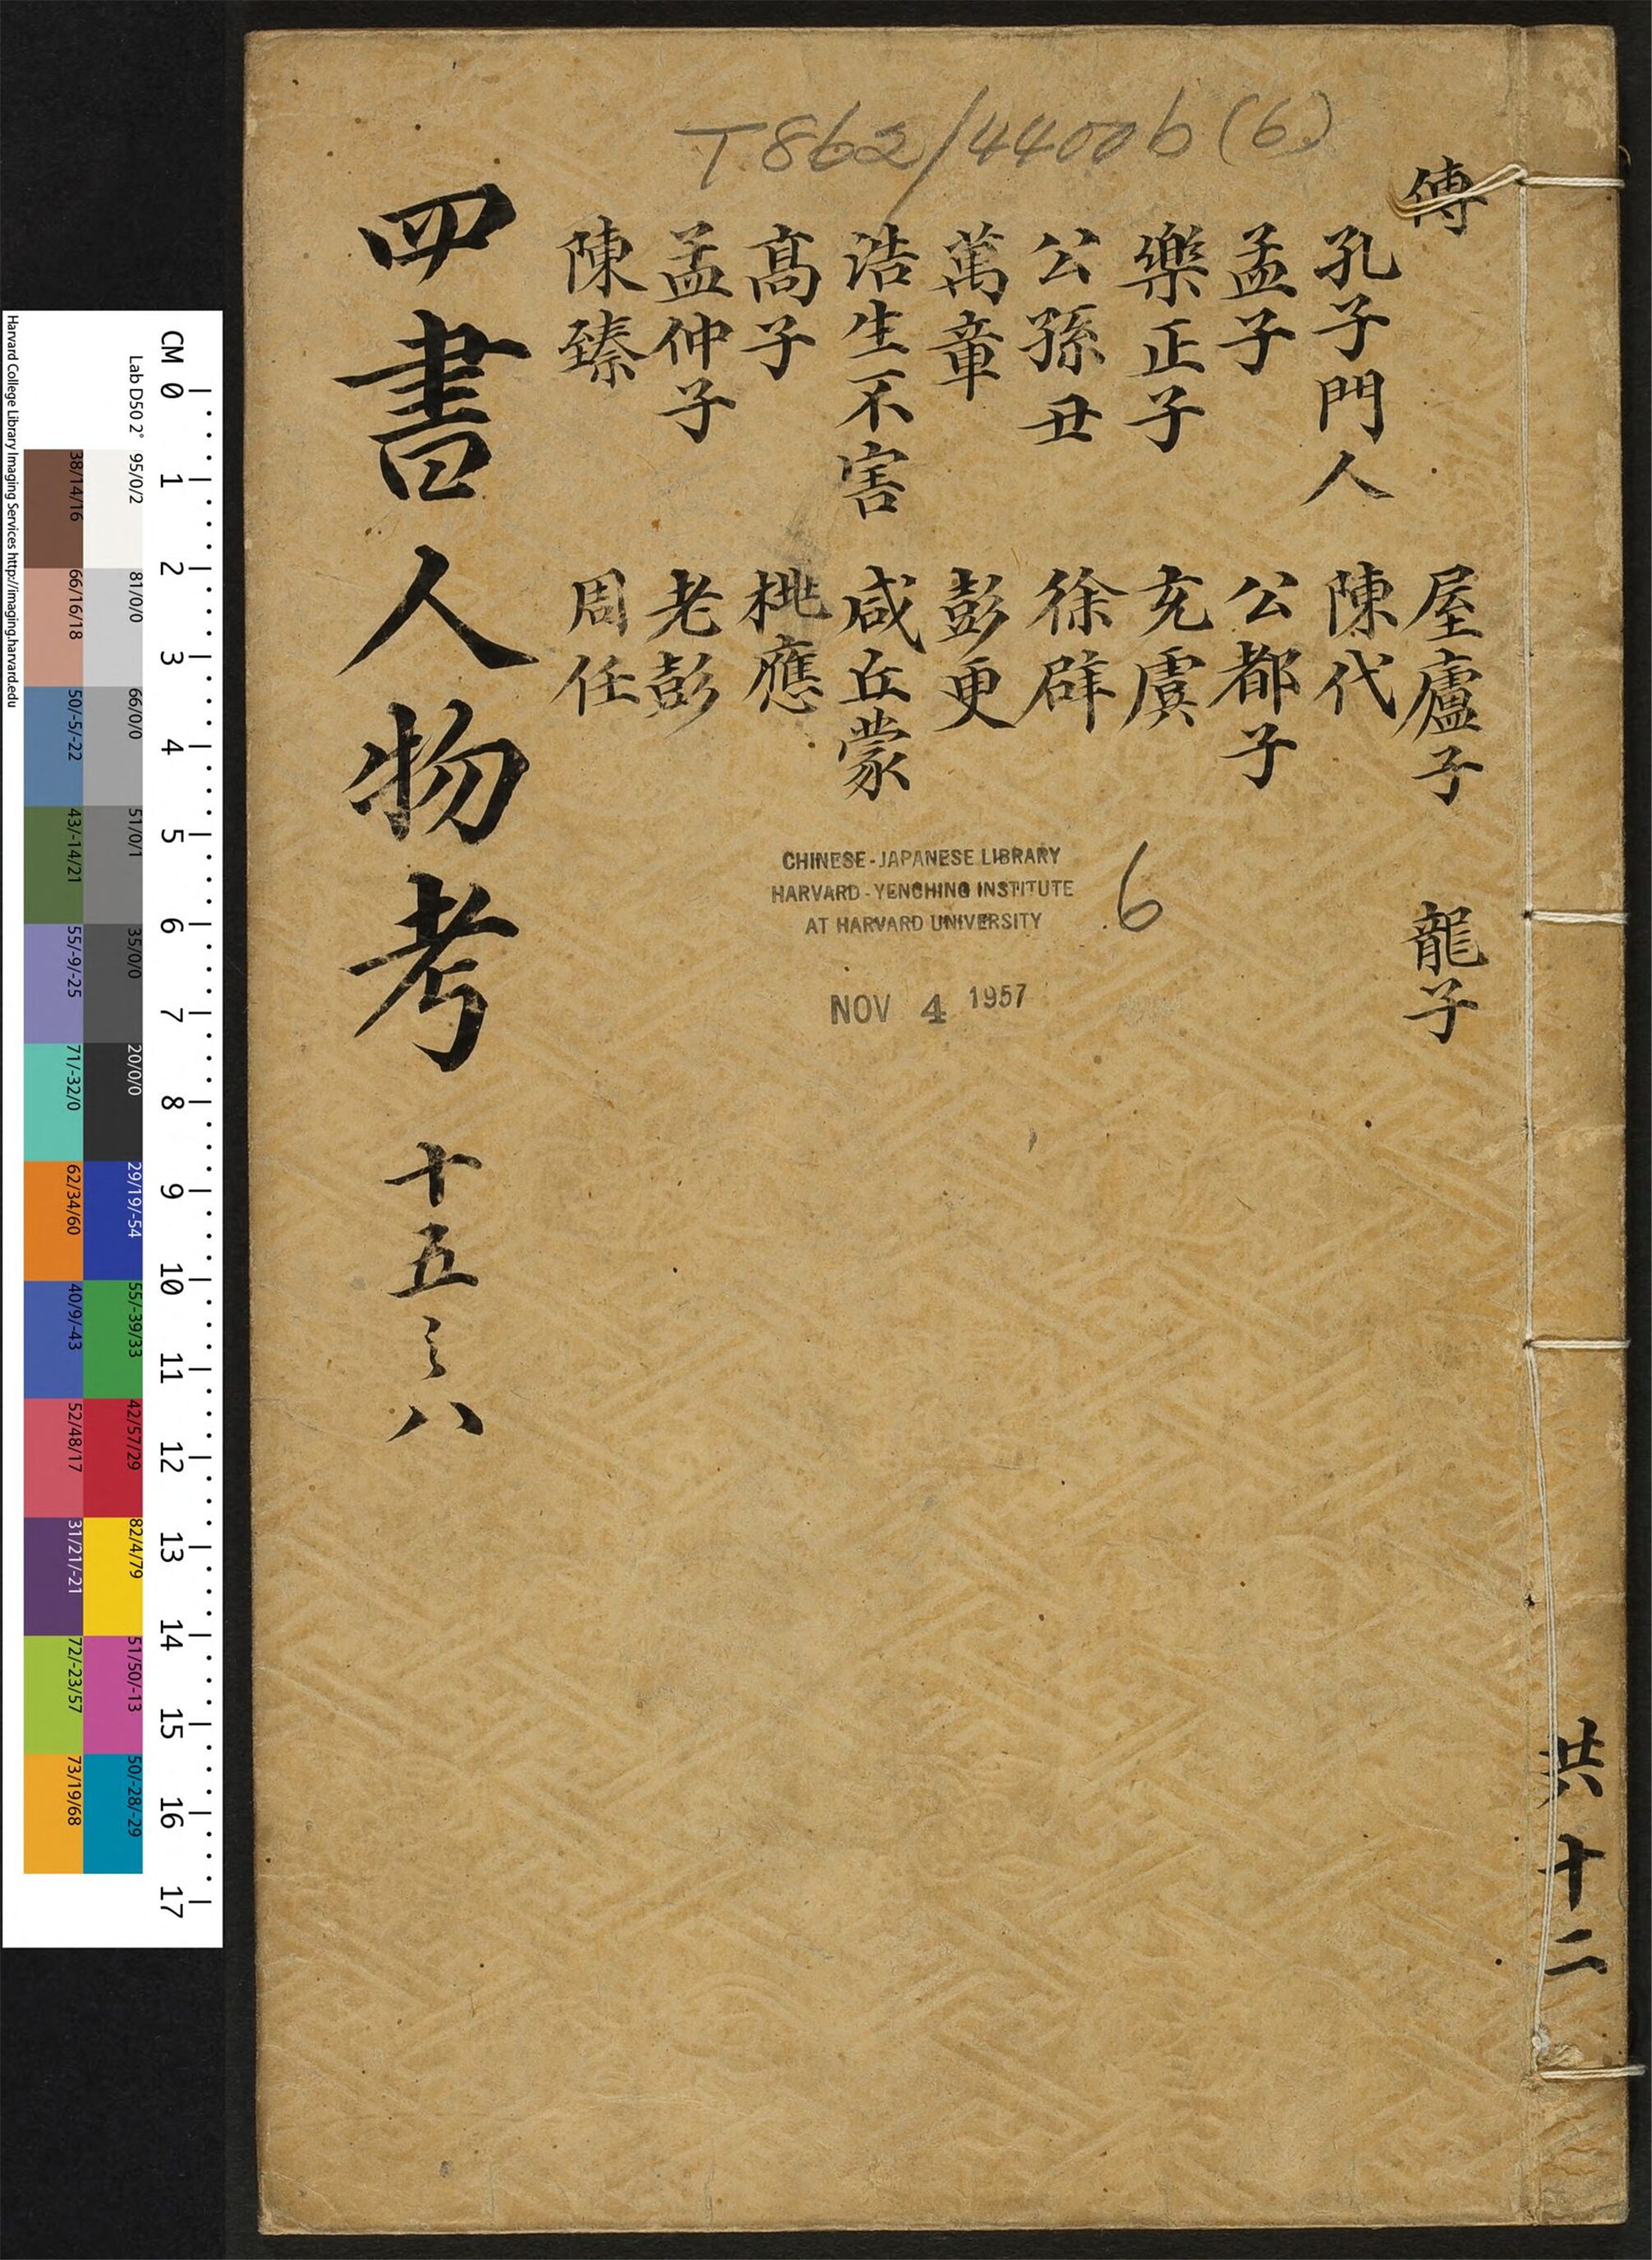 T862/4400b(6)
傳
孔子門人
孟子
樂正子
公孫丑
萬章
浩生不害
髙子
孟仲子
陳臻
屋廬子
陳代
公都子
充虞
徐辟
彭更
咸丘蒙
桃應
老彭
周任
龍子
四書人物考 十五之八
CHINESE-JAPANESE LIBRARY
HARVARD-YENCHING INSTITUTE
AT HARVARD UNIVERSITY
6
NOV 4 1957
共十二
CM 0 1 2 3 4 5 6 7 8 9 10 11 12 13 14 15 16 17
Lab D50 2°
95/0/2
81/0/0
66/0/0
51/0/1
35/0/0
20/0/0
29/19/-54
55/-39/33
42/57/29
82/4/79
51/50/-13
50/-28/-29
38/14/16
66/16/18
50/-5/-22
43/-14/21
55/-9/-25
71/-32/0
62/34/60
40/9/-43
52/48/17
31/21/-21
72/-23/57
73/19/68
Harvard College Library Imaging Services http://imaging.harvard.edu